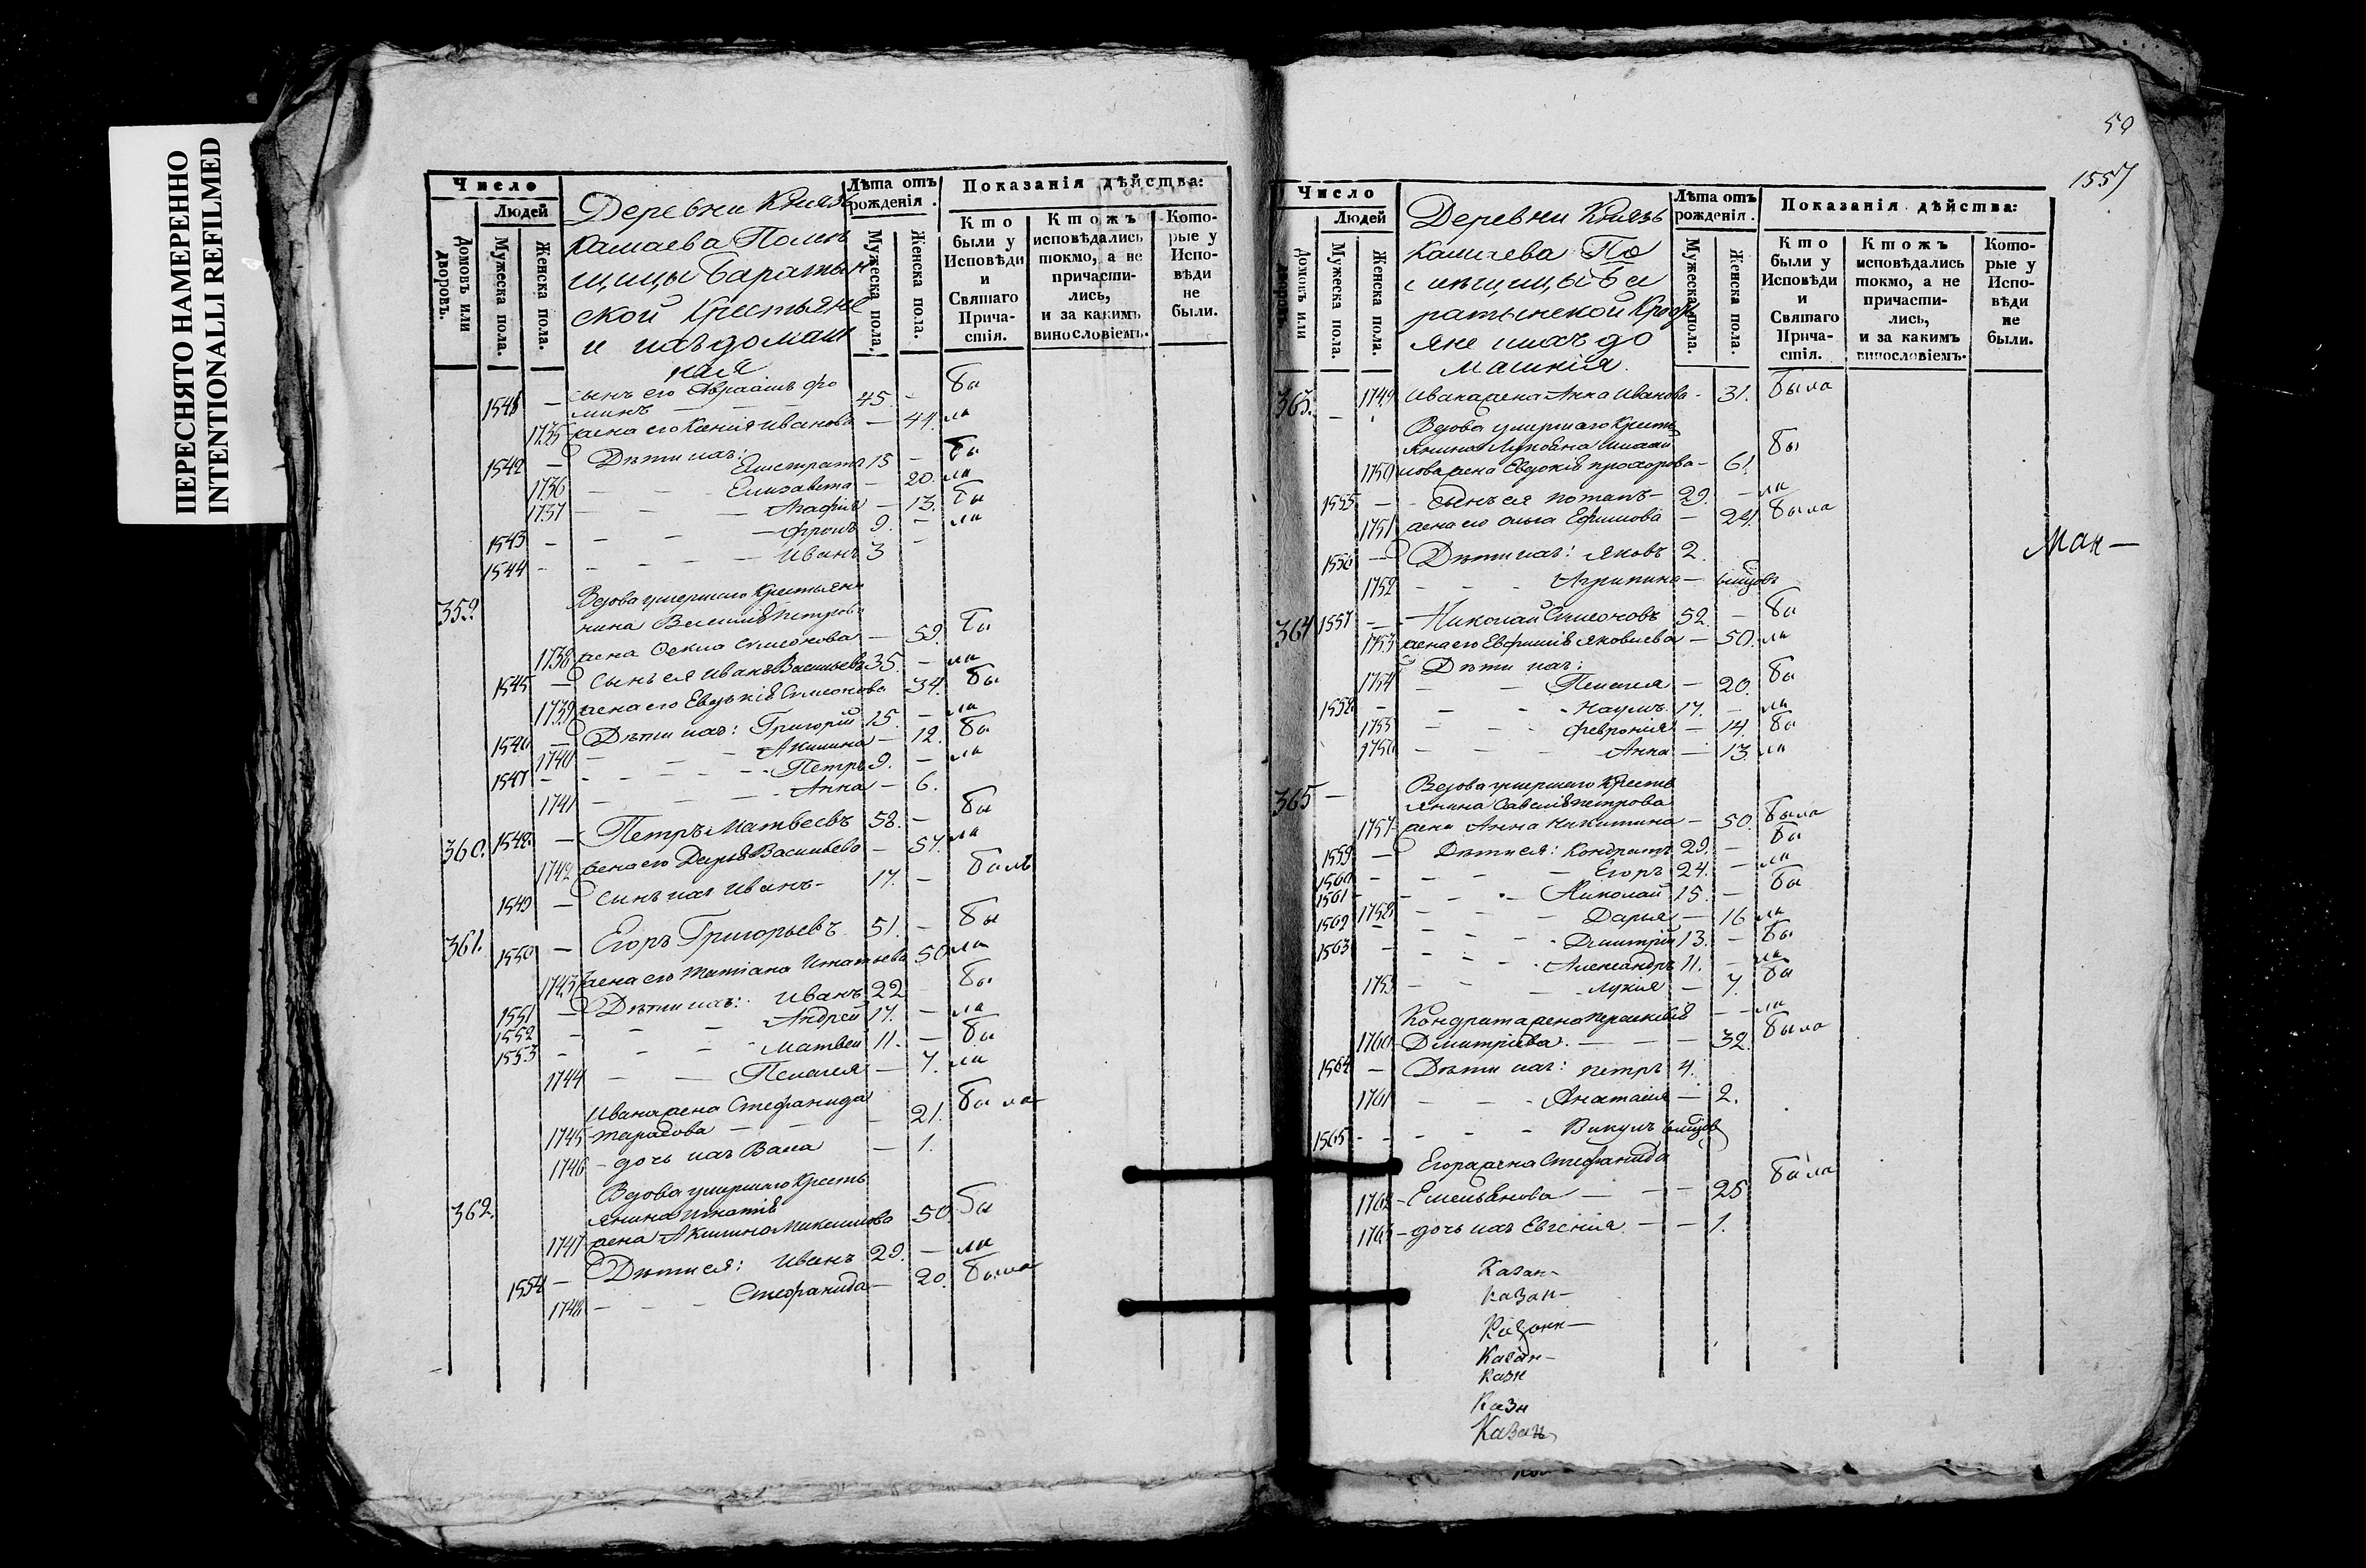 ПЕРЕСНЯТО НАМЕРЕННО
INTENTIONALLI REFILMED
Число
Людей
Домовъ или дворовъ.
Мужеска пола.
Женска пола.
Деревни Князь
Камаева Помѣ
щицы Баратын
ской Крестьяне
и ихъ домаш
нія
Лѣта отъ рожденія.
Мужеска пола.
Женска пола.
Показанія дѣйства:
Кто были у Исповѣди и Святаго Прича-стія.
Ктожъ исповѣдались токмо, а не причасти-лись, и за какимъ винословіемъ.
Кото-рые у Испо-вѣди не были.
1541 — сынъ его Авраамъ Фо
минъ — 45. — бы
1735 жена его Ксенія Иванова — 44. ли
1542 — Дѣти ихъ: Евстратъ 15 — бы
1736 — — Елизавета — 20. ли
1737 — — Агафія — 13. бы
1543 — — — Фролъ 9. — ли
1544 — — — Иванъ 3 —
359. Вдова умершаго Крестьяни
нина Василія Петрова
1738 жена Фекла Симеонова — 59. бы
1545 — Сынъ ея Иванъ Васильевъ 35. — ли
1739 жена его Евдокія Симеонова 34. бы
1546 — Дѣти ихъ: Григорій 15. — ли
1740 — — Акилина — 12. бы
1547 — — — Петръ 9. — ли
1741 — — — Анна — 6.
360. 1548. — Петръ Матвеевъ 58. — бы
1742 жена его Дарья Васильева — 57. ли
1549 — Сынъ ихъ Иванъ — 17. — былъ
361. 1550 — Егоръ Григорьевъ 51. — бы
1743 жена его Татіана Игнатьева 50 ли
1551 — Дѣти ихъ: Иванъ 22 — бы
1552 — — — Андрей 17. — ли
1553 — — — Матвей 11. — бы
1744 — — Пелагея — 7. ли
Ивана жена Стефанида
1745 Тарасова — — 21. была
1746 — дочь ихъ Васса — 1.
362. Вдова умершаго Кресть
янина Игнатія
1747 жена Акилина Максимова 50. бы
1554 — Дѣти ея: Иванъ 29. — ли
1748 — — Стефанида — 20. была
50
1557
Число
Людей
Домовъ или дворовъ.
Мужеска пола.
Женска пола.
Деревни Князь
Камаева По
мѣщицы Ба
ратынской Кресть
яне ихъ до
машнія.
Лѣта отъ рожденія.
Мужеска пола.
Женска пола.
Показанія дѣйства:
Кто были у Исповѣди и Святаго Прича-стія.
Ктожъ исповѣдались токмо, а не причасти-лись, и за какимъ винословіемъ.
Кото-рые у Испо-вѣди не были.
1749 Ивана жена Анна Иванова — 31. была
363. — Вдова умершаго Кресть
янина
1750 жена Евдокія Прохорова — 61 бы
1555 — сынъ ея Потапъ — 29. — ли
1751 жена его Ольга Ефимова — 24. была
1556 — Дѣти ихъ: Яковъ 2.
1752 — — Агрипина —
364 1557 — Николай Симеоновъ 52. — бы
1753 жена его Евфимія Яковлева — 50. ли
Дѣти ихъ:
1754 — — Пелагея — 20. бы
1558 — — — Наумъ 17. — ли
1755 — — Февронія — 14. бы
1756 — — Анна — 13. ли
365 — Вдова умершаго Кресть
янина Савелія Петрова
1757 жена Анна Никитина — 50. была
1559 — Дѣти ея: Кондратъ 29. — бы
1560 — — — Егоръ 24. — ли
1561 — — — Николай 15. — бы
1758 — — Дарья — 16 ли
1562 — — — Дмитрій 13. — бы
1563 — — — Александръ 11. — ли
1759 — — Лукія — 7. бы
Кондрата жена Параскевія — — ли
1760 Дмитріева — — — 32. была
1564 — Дѣти ихъ: Петръ 4.
1761 — — Анастасія — 2.
1565 — — — Викулъ
Егора жена Стефанида
1762 — Емельянова — — — 25 была
1763 — дочь ихъ Евгенія — — 1.
Ман —
Казан-
Казан-
Казанн-
Казан-
Казн
Казн
Казань